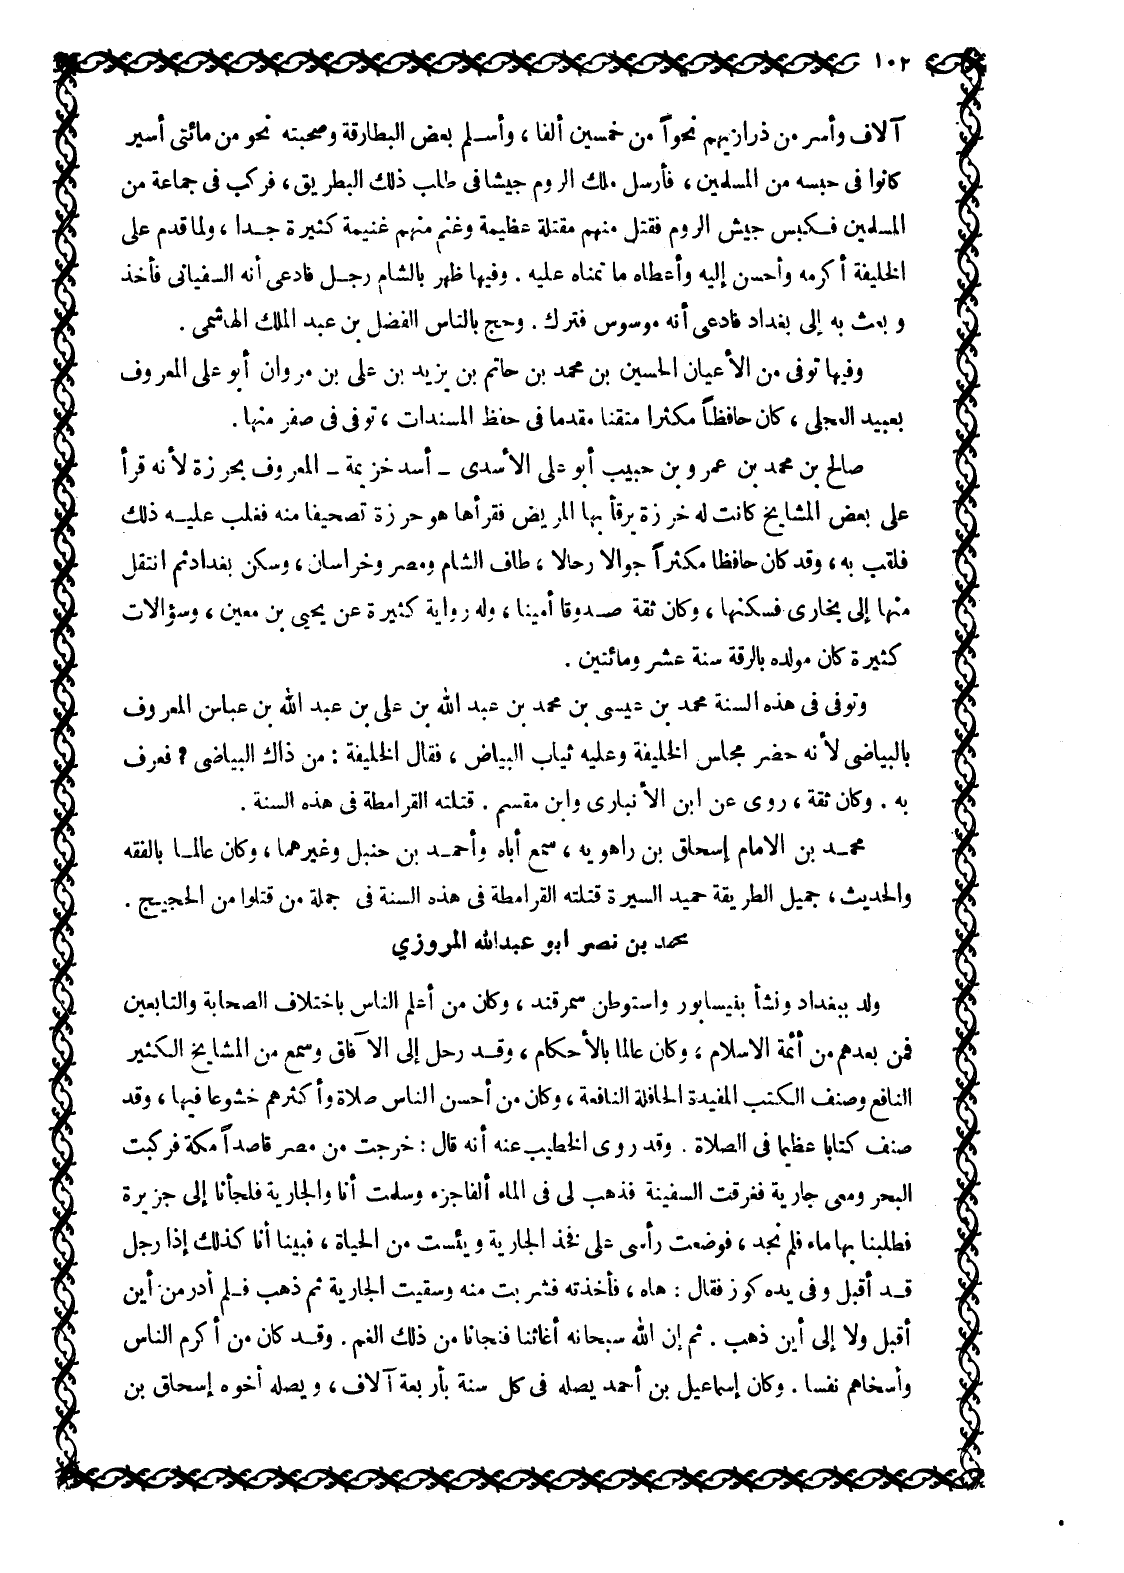 ١٠٢
آلاف وأسر من ذراريهم نحواً من خمسين ألفا ، وأسلم بعض البطارقة وصحبته نحو من مائتى أسير
كانوا فى حبسه من المسلمين ، فأرسل ملك الروم جيشا فى طلب ذلك البطريق ، فركب فى جماعة من
المسلمين فكبس جيش الروم فقتل منهم مقتلة عظيمة وغنم منهم غنيمة كثيرة جدا ، ولما قدم على
الخليفة أكرمه وأحسن إليه وأعطاه ما تمناه عليه . وفيها ظهر بالشام رجل فادعى أنه السفيانى فأخذ
وبعث به إلى بغداد فادعى أنه موسوس فترك . وحج بالناس الفضل بن عبد الملك الهاشمى .
وفيها توفى من الأعيان الحسين بن محمد بن حاتم بن يزيد بن على بن مروان أبو على المعروف
بعبيد العجلى ، كان حافظاً مكثرا متقنا مقدما فى حفظ المسندات ، توفى فى صفر منها .
صالح بن محمد بن عمرو بن حبيب أبو على الأسدى - أسد خزيمة - المعروف بجرزة لأنه قرأ
على بعض المشايخ كانت له خرزة يرقأ بها المريض فقرأها هو حرزة تصحيفا منه فغلب عليه ذلك
فلقب به ، وقد كان حافظا مكثراً جوالا رحالا ، طاف الشام ومصر وخراسان ، وسكن بغداد ثم انتقل
منها إلى بخارى فسكنها ، وكان ثقة صدوقا أمينا ، وله رواية كثيرة عن يحيى بن معين ، وسؤالات
كثيرة كان مولده بالرقة سنة عشر ومائتين .
وتوفى فى هذه السنة محمد بن عيسى بن محمد بن عبد الله بن على بن عبد الله بن عباس المعروف
بالبياضى لأنه حضر مجلس الخليفة وعليه ثياب البياض ، فقال الخليفة : من ذاك البياضى ؟ فعرف
به . وكان ثقة ، روى عن ابن الأنبارى وابن مقسم . قتلته القرامطة فى هذه السنة .
محمد بن الامام إسحاق بن راهويه ، سمع أباه وأحمد بن حنبل وغيرهما ، وكان عالما بالفقه
والحديث ، جميل الطريقة حميد السيرة قتلته القرامطة فى هذه السنة فى جملة من قتلوا من الحجيج .
محمد بن نصر ابو عبدالله المروزي
ولد ببغداد ونشأ بنيسابور واستوطن سمرقند ، وكان من أعلم الناس باختلاف الصحابة والتابعين
فمن بعدهم من أئمة الاسلام ، وكان عالما بالأحكام ، وقد رحل إلى الآفاق وسمع من المشايخ الكثير
النافع وصنف الكتب المفيدة الحافلة النافعة ، وكان من أحسن الناس صلاة وأكثرهم خشوعا فيها ، وقد
صنف كتابا عظيما فى الصلاة . وقد روى الخطيب عنه أنه قال : خرجت من مصر قاصداً مكة فركبت
البحر ومعى جارية فغرقت السفينة فذهب لى فى الماء ألفا جزء وسلمت أنا والجارية فلجأنا إلى جزيرة
فطلبنا بها ماء فلم نجد ، فوضعت رأسى على فخذ الجارية ويئست من الحياة ، فبينا أنا كذلك إذا رجل
قد أقبل وفى يده كوز فقال : هاه ، فأخذته فشربت منه وسقيت الجارية ثم ذهب فلم أدر من أين
أقبل ولا إلى أين ذهب . ثم إن الله سبحانه أغاثنا فنجانا من ذلك الغم . وقد كان من أكرم الناس
وأسخاهم نفسا . وكان إسماعيل بن أحمد يصله فى كل سنة بأربعة آلاف ، ويصله أخوه إسحاق بن